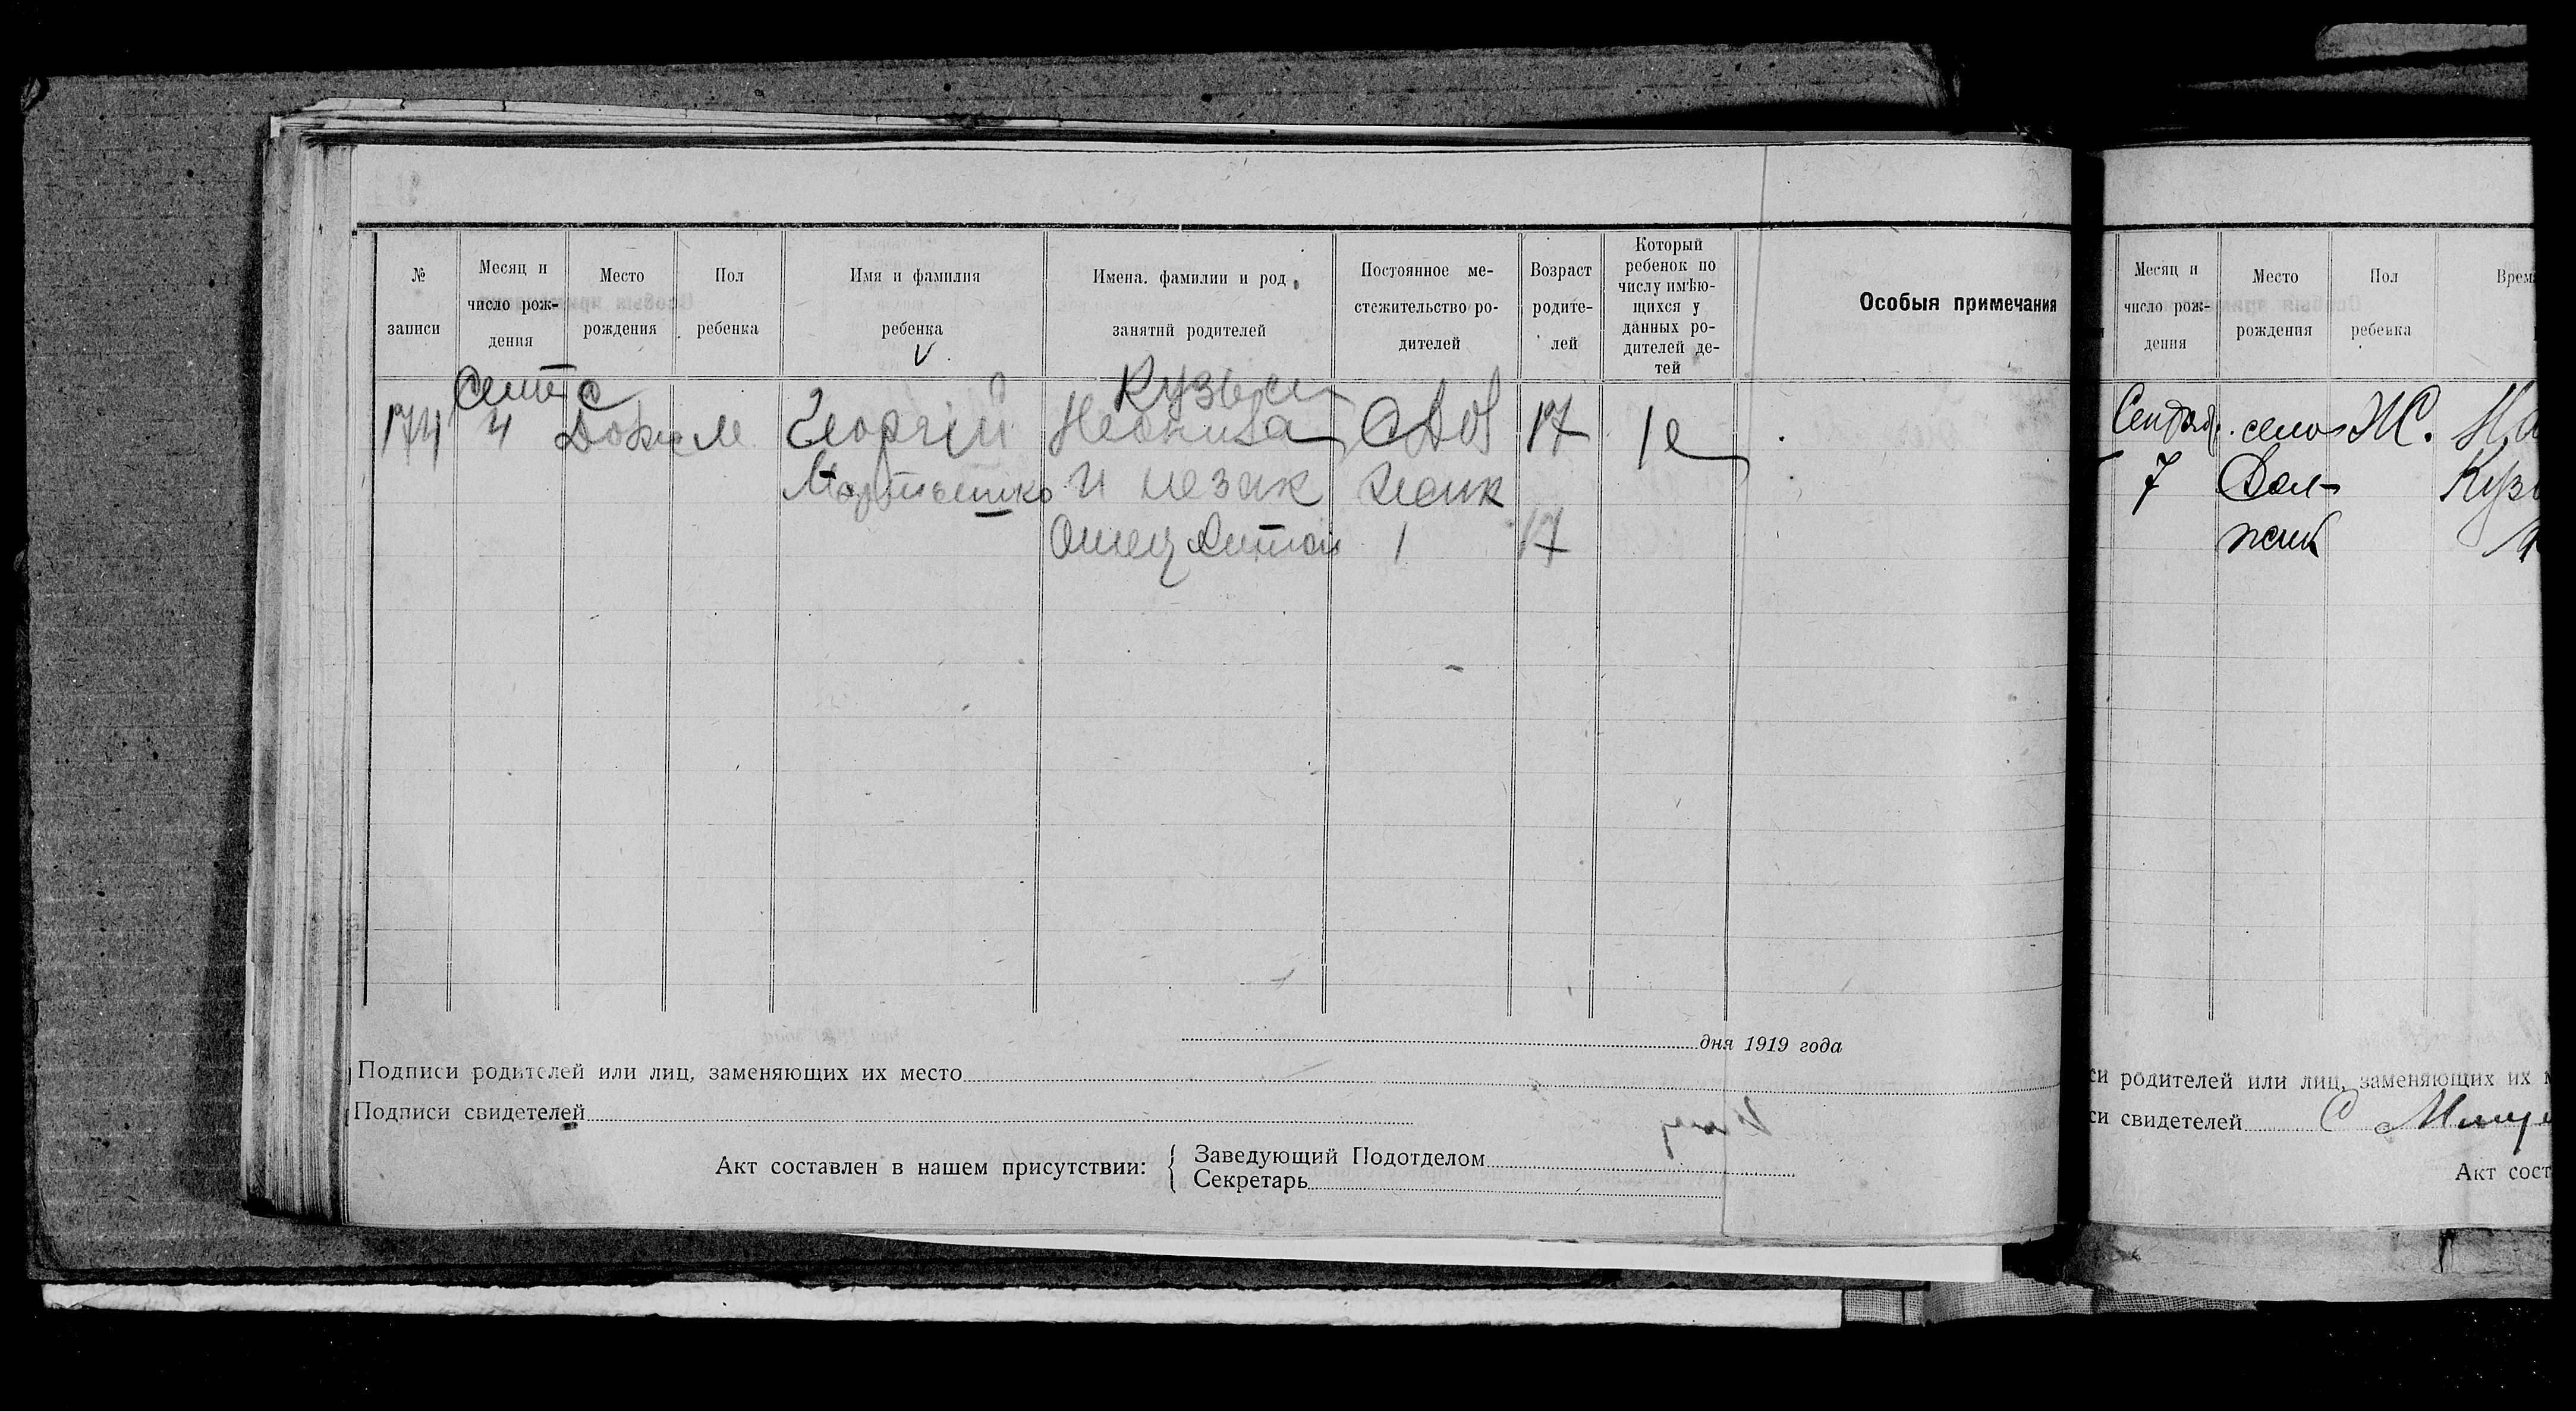 №
записи
Месяц и
число рож-
дения
Место
рождения
Пол
ребенка
Имя и фамилия
ребенка
Имена. фамилии и род
занятий родителей
Постоянное ме-
стежительство ро-
дителей
Возраст
родите-
лей
Который
ребенок по
числу имѣю-
щихся у
данных ро-
дителей де-
тей
Особыя примечания
V
Сент с
Кузьм
174 4 Долж м Георгій Неонила С Дол 17 1е
Мартыненко и незак жик
Отец Антон 1 17
дня 1919 года
Подписи родителей или лиц, заменяющих их место
Подписи свидетелей
Акт составлен в нашем присутствии:
Заведующий Подотделом
Секретарь
Месяц и
число рож-
дения
Место
рождения
Пол
ребенка
Врем
Сентяб. село Ж.
7 Дол-
жик
си родителей или лиц, заменяющих их м
си свидетелей С
Акт сост